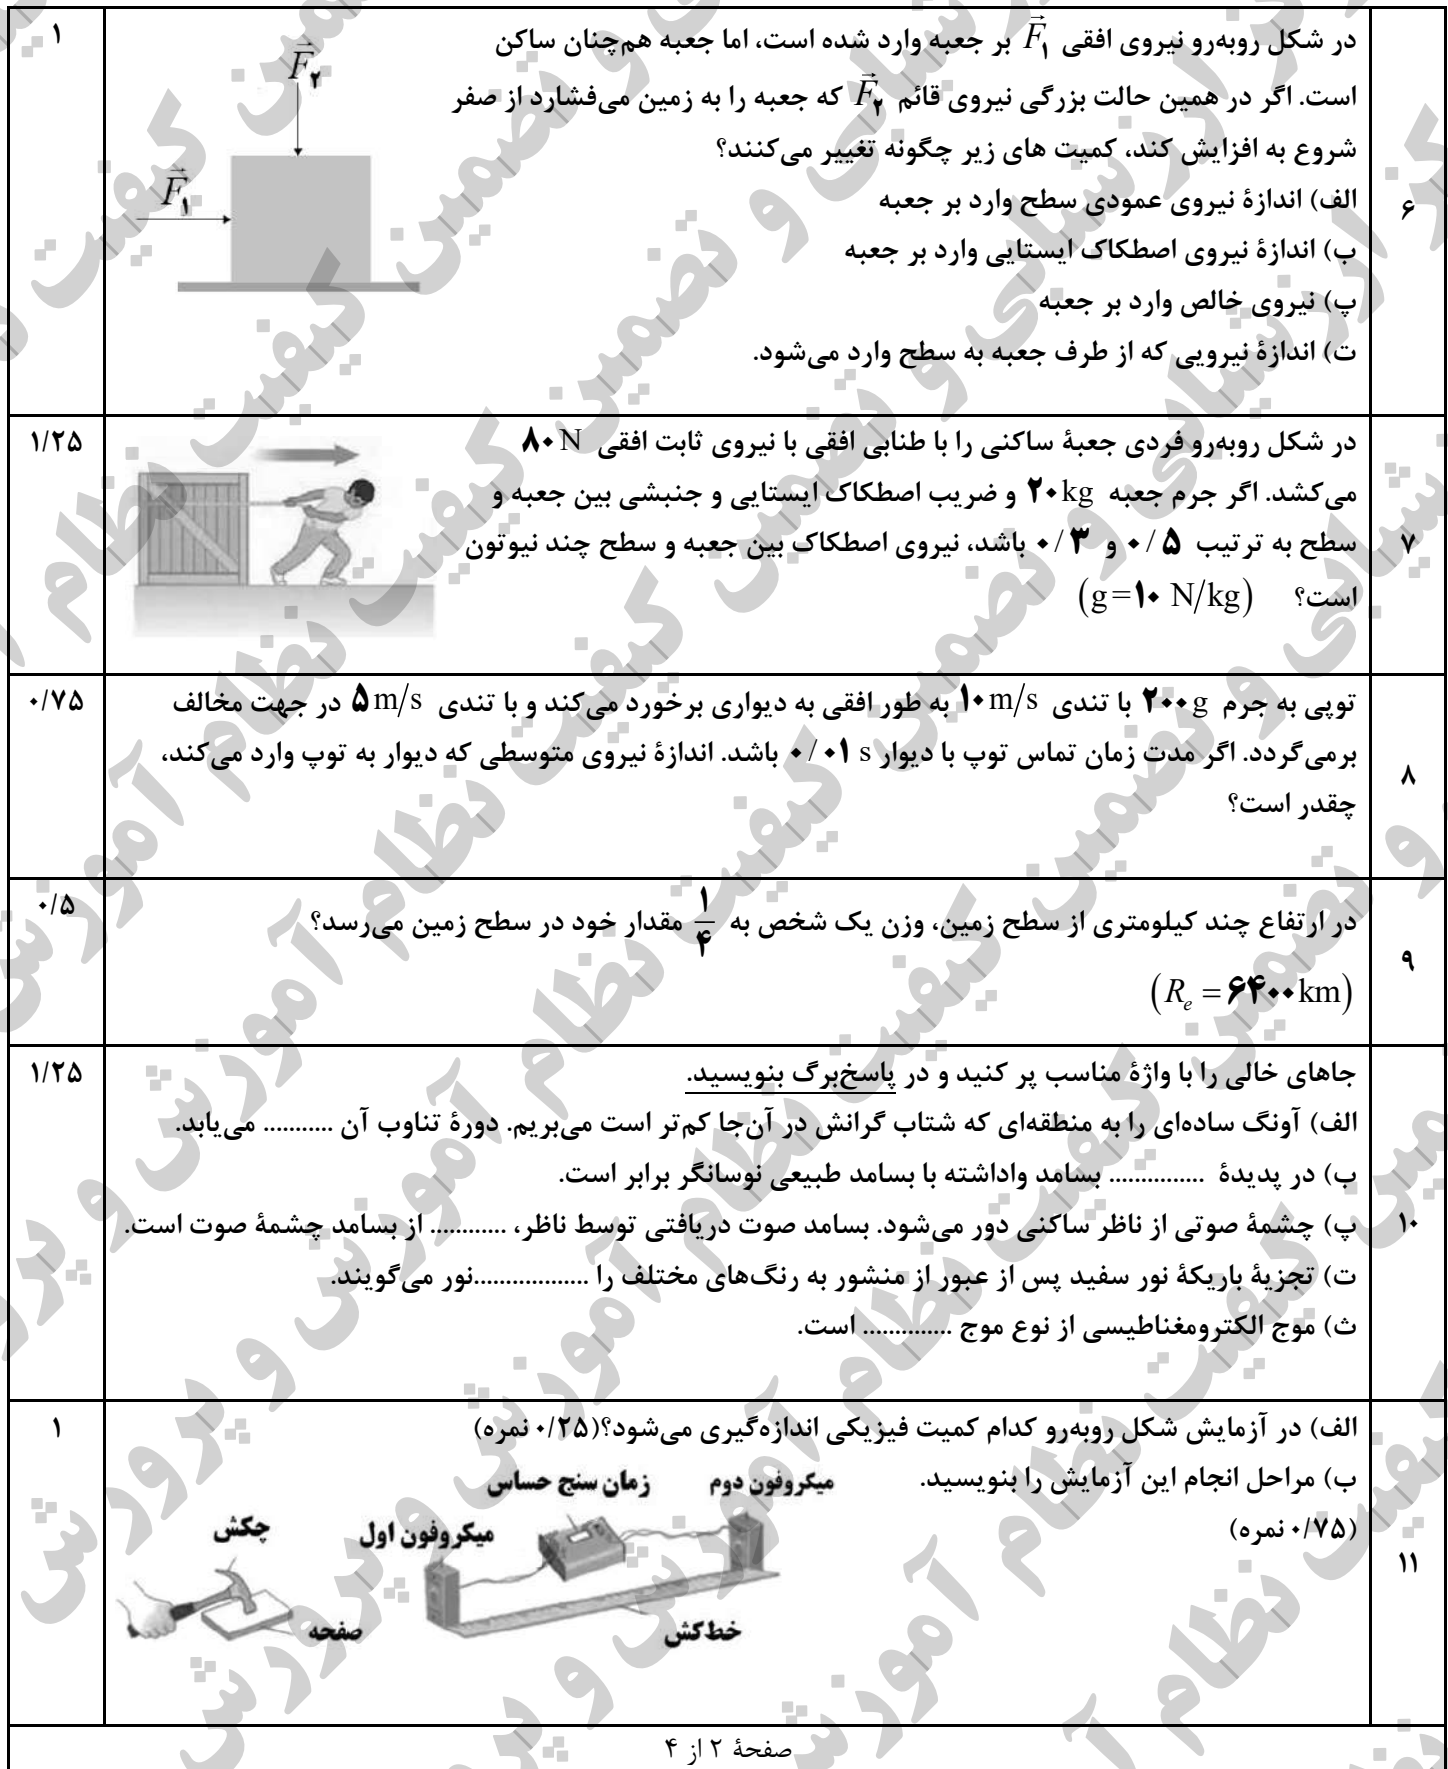 ۶
در شکل روبه‌رو نیروی افقی F⃗۱ بر جعبه وارد شده است، اما جعبه هم‌چنان ساکن
است. اگر در همین حالت بزرگی نیروی قائم F⃗۲ که جعبه را به زمین می‌فشارد از صفر
شروع به افزایش کند، کمیت های زیر چگونه تغییر می‌کنند؟
الف) اندازهٔ نیروی عمودی سطح وارد بر جعبه
ب) اندازهٔ نیروی اصطکاک ایستایی وارد بر جعبه
پ) نیروی خالص وارد بر جعبه
ت) اندازهٔ نیرویی که از طرف جعبه به سطح وارد می‌شود.
F⃗۲
F⃗۱
۱
۷
در شکل روبه‌رو فردی جعبهٔ ساکنی را با طنابی افقی با نیروی ثابت افقی ۸۰ N
می‌کشد. اگر جرم جعبه ۲۰ kg و ضریب اصطکاک ایستایی و جنبشی بین جعبه و
سطح به ترتیب ۰/۵ و ۰/۳ باشد، نیروی اصطکاک بین جعبه و سطح چند نیوتون
است؟ (g=۱۰ N/kg)
۱/۲۵
۸
توپی به جرم ۲۰۰ g با تندی ۱۰ m/s به طور افقی به دیواری برخورد می‌کند و با تندی ۵ m/s در جهت مخالف
برمی‌گردد. اگر مدت زمان تماس توپ با دیوار ۰/۰۱ s باشد. اندازهٔ نیروی متوسطی که دیوار به توپ وارد می‌کند،
چقدر است؟
۰/۷۵
۹
در ارتفاع چند کیلومتری از سطح زمین، وزن یک شخص به ۱/۴ مقدار خود در سطح زمین می‌رسد؟
(Re = ۶۴۰۰ km)
۰/۵
۱۰
جاهای خالی را با واژهٔ مناسب پر کنید و در پاسخ‌برگ بنویسید.
الف) آونگ ساده‌ای را به منطقه‌ای که شتاب گرانش در آن‌جا کم‌تر است می‌بریم. دورهٔ تناوب آن ........... می‌یابد.
ب) در پدیدهٔ ............... بسامد واداشته با بسامد طبیعی نوسانگر برابر است.
پ) چشمهٔ صوتی از ناظر ساکنی دور می‌شود. بسامد صوت دریافتی توسط ناظر، ............ از بسامد چشمهٔ صوت است.
ت) تجزیهٔ باریکهٔ نور سفید پس از عبور از منشور به رنگ‌های مختلف را ..................نور می‌گویند.
ث) موج الکترومغناطیسی از نوع موج .............. است.
۱/۲۵
۱۱
الف) در آزمایش شکل روبه‌رو کدام کمیت فیزیکی اندازه‌گیری می‌شود؟(۰/۲۵ نمره)
ب) مراحل انجام این آزمایش را بنویسید.
(۰/۷۵ نمره)
میکروفون دوم
زمان سنج حساس
میکروفون اول
چکش
صفحه
خط‌کش
۱
صفحهٔ ۲ از ۴
مرکز ارزشیابی و تضمین کیفیت نظام آموزش و پرورش